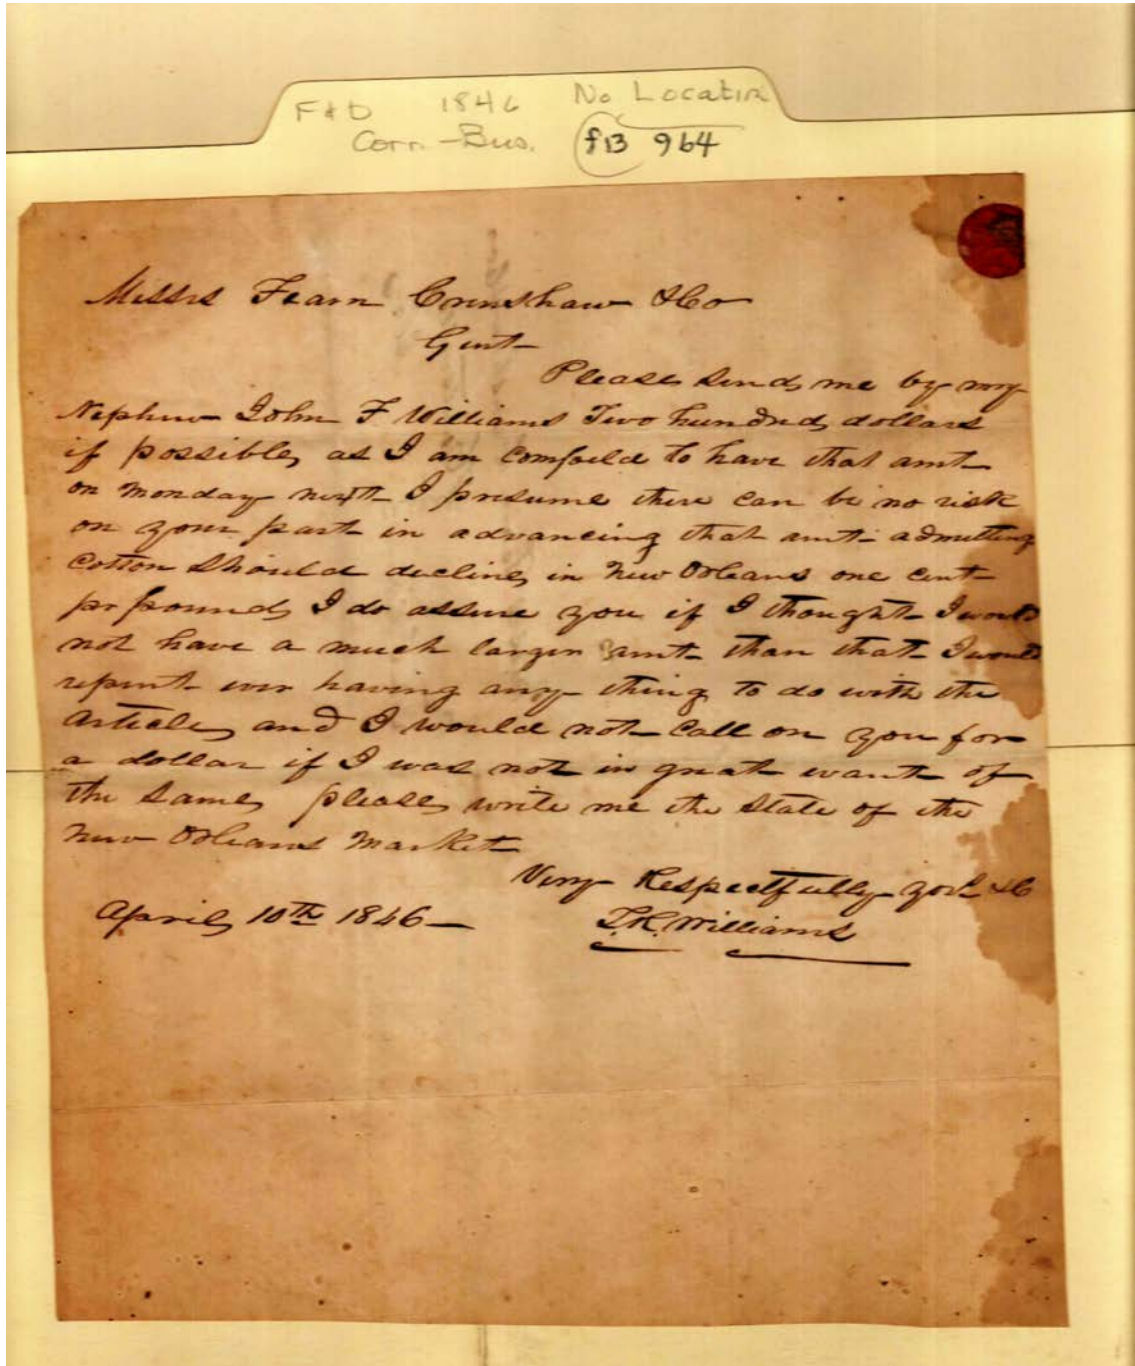 F & D 1846 No Location
Corr. - Bus. f13 964
Messrs Fearn Crenshaw & Co
Gent
Please send me by my
Nephew John F Williams Two hundred dollars
if possible, as I am compeeld to have that amt
on monday next I presume there can be no risk
on your part in advancing that amt admitting
Cotton should decline, in New Orleans one cent
pr pound, I do assure you if I thought I would
not have a much larger amt than that I would
repent ever having any thing to do with the
Article, and I would not Call on you for
a dollar if I was not in great want of
the same, please, write me the State of the
New Orleans Market
Very Respectfully yours &c
April, 10th 1846 T.H. Williams